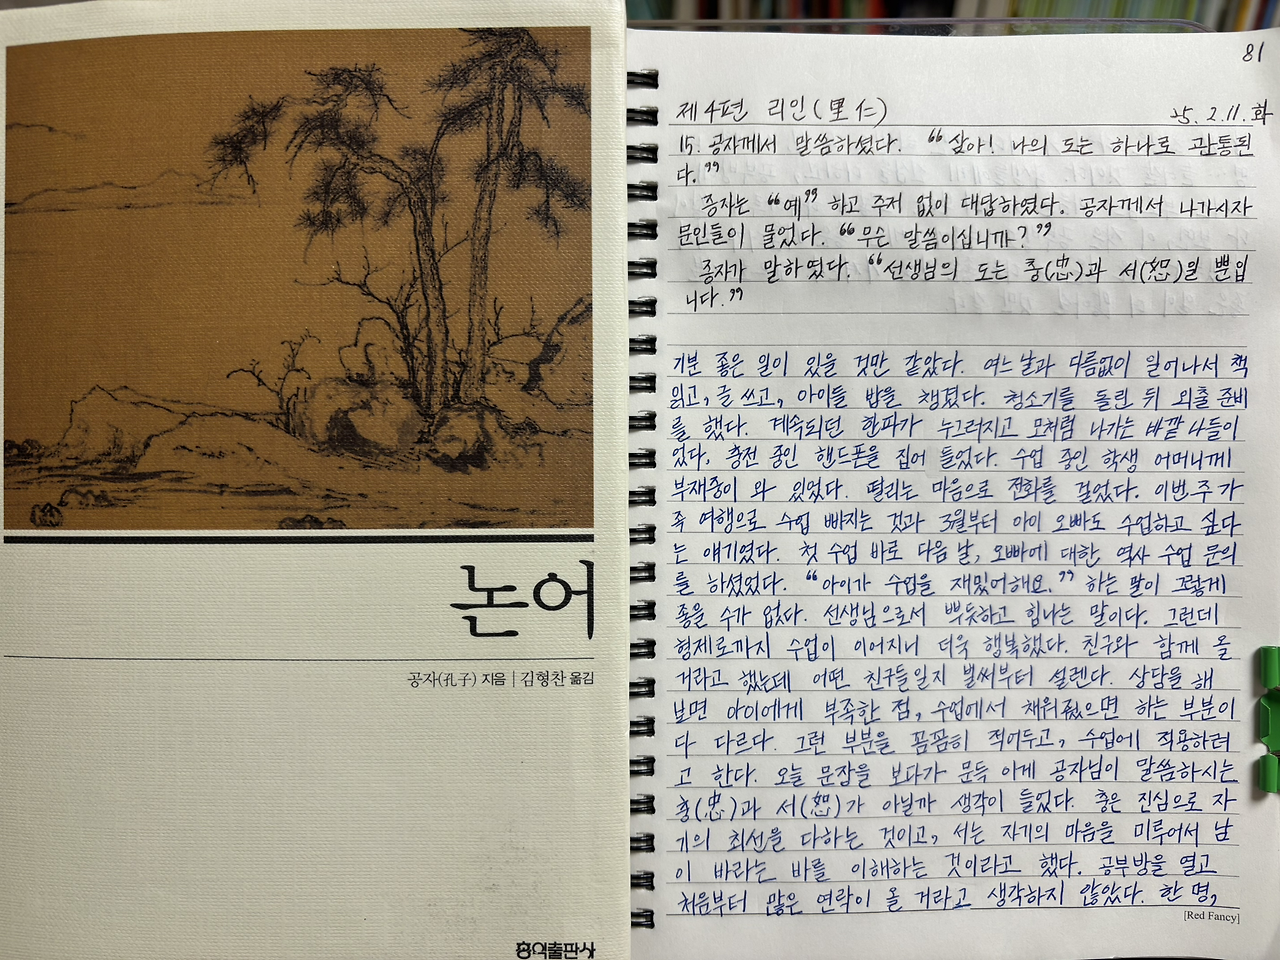 논어
공자(孔子) 지음 | 김형찬 옮김
홍익출판사
81
제4편 리인(里仁) 25. 2. 11. 화
15. 공자께서 말씀하셨다. “삼아! 나의 도는 하나로 관통된
다.”
증자는 “예” 하고 주저 없이 대답하였다. 공자께서 나가시자
문인들이 물었다. “무슨 말씀이십니까?”
증자가 말하였다. “선생님의 도는 충(忠)과 서(恕)일 뿐입
니다.”
기분 좋은 일이 있을 것만 같았다. 여느날과 다름없이 일어나서 책
읽고, 글 쓰고, 아이들 밥을 챙겼다. 청소기를 돌린 뒤 외출 준비
를 했다. 계속되던 한파가 누그러지고 모처럼 나가는 바깥 나들이
었다. 충전 중인 핸드폰을 집어 들었다. 수업 중인 학생 어머니께
부재중이 와 있었다. 떨리는 마음으로 전화를 걸었다. 이번 주 가
족 여행으로 수업 빠지는 것과 3월부터 아이 오빠도 수업하고 싶다
는 얘기였다. 첫 수업 바로 다음 날, 오빠에 대한 역사 수업 문의
를 하셨었다. “아이가 수업을 재밌어해요.” 하는 말이 그렇게
좋을 수가 없다. 선생님으로서 뿌듯하고 힘나는 말이다. 그런데
형제로까지 수업이 이어지니 더욱 행복했다. 친구와 함께 올
거라고 했는데 어떤 친구들일지 벌써부터 설렌다. 상담을 해
보면 아이에게 부족한 점, 수업에서 채워줬으면 하는 부분이
다 다르다. 그런 부분을 꼼꼼히 적어두고, 수업에 적용하려
고 한다. 오늘 문장을 보다가 문득 이게 공자님이 말씀하시는
충(忠)과 서(恕)가 아닐까 생각이 들었다. 충은 진심으로 자
기의 최선을 다하는 것이고, 서는 자기의 마음을 미루어서 남
이 바라는 바를 이해하는 것이라고 했다. 공부방을 열고
처음부터 많은 연락이 올 거라고 생각하지 않았다. 한 명,
[Red Fancy]